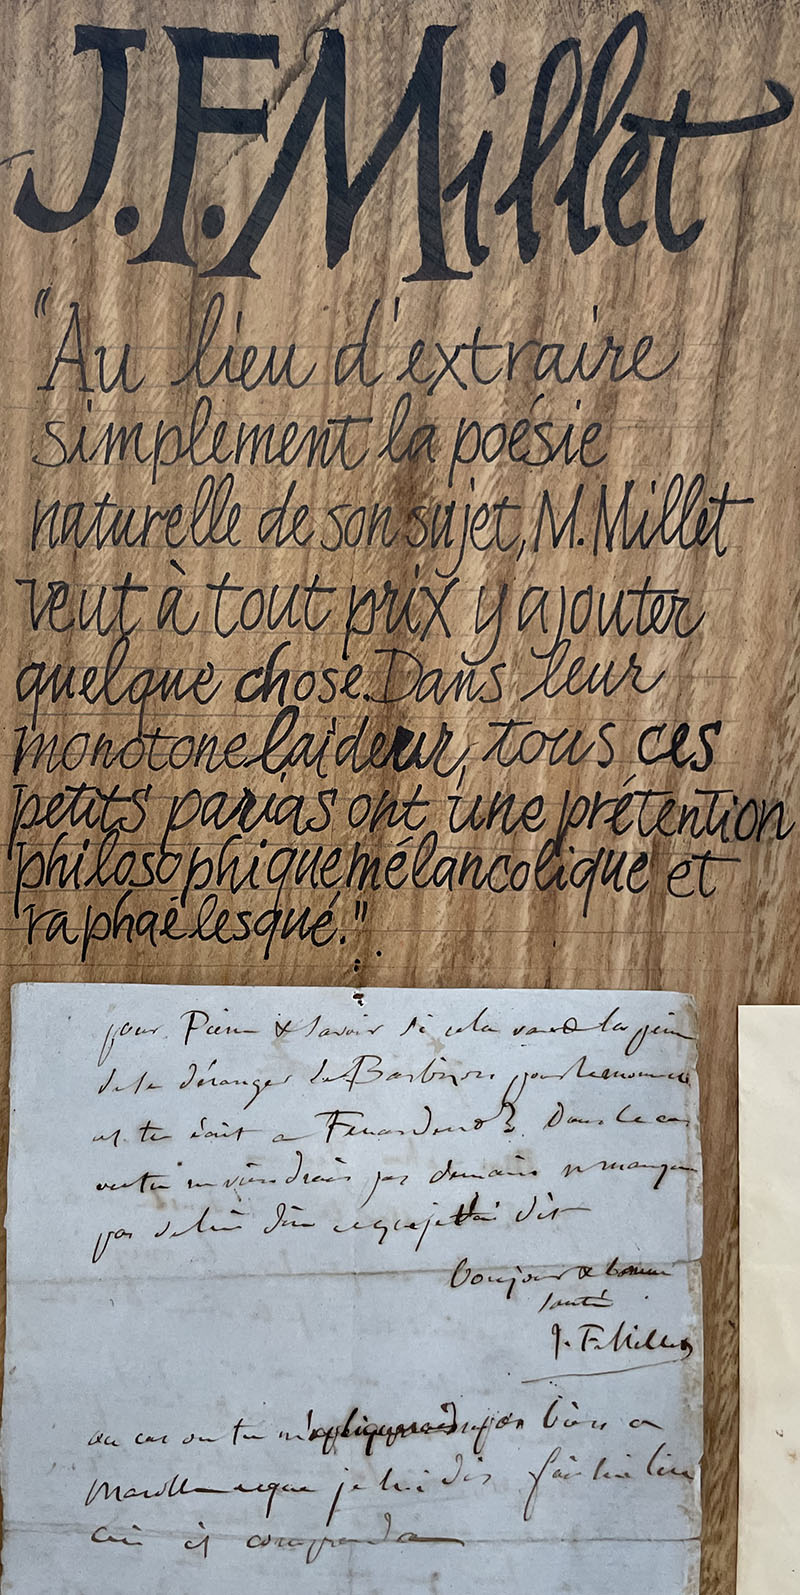 J.F. Millet
"Au lieu d'extraire
simplement la poésie
naturelle de son sujet, M. Millet
veut à tout prix y ajouter
quelque chose. Dans leur
monotone laideur, tous ces
petits parias ont une prétention
philosophique, mélancolique et
raphaëlesqué."
pour & savoir si cela vaut la peine
de se déranger de Barbizon pour le moment
et tu écrit a Feuardent? Dans le cas
ou tu ne viendrais pas demain ne manque
pas de lui dire ce que je t'ai dit
bonjour & bonne
santé
J. F. Millet
au cas ou tu pas bien a
ce que je lui dis fais lui lire
ceci et comprendra